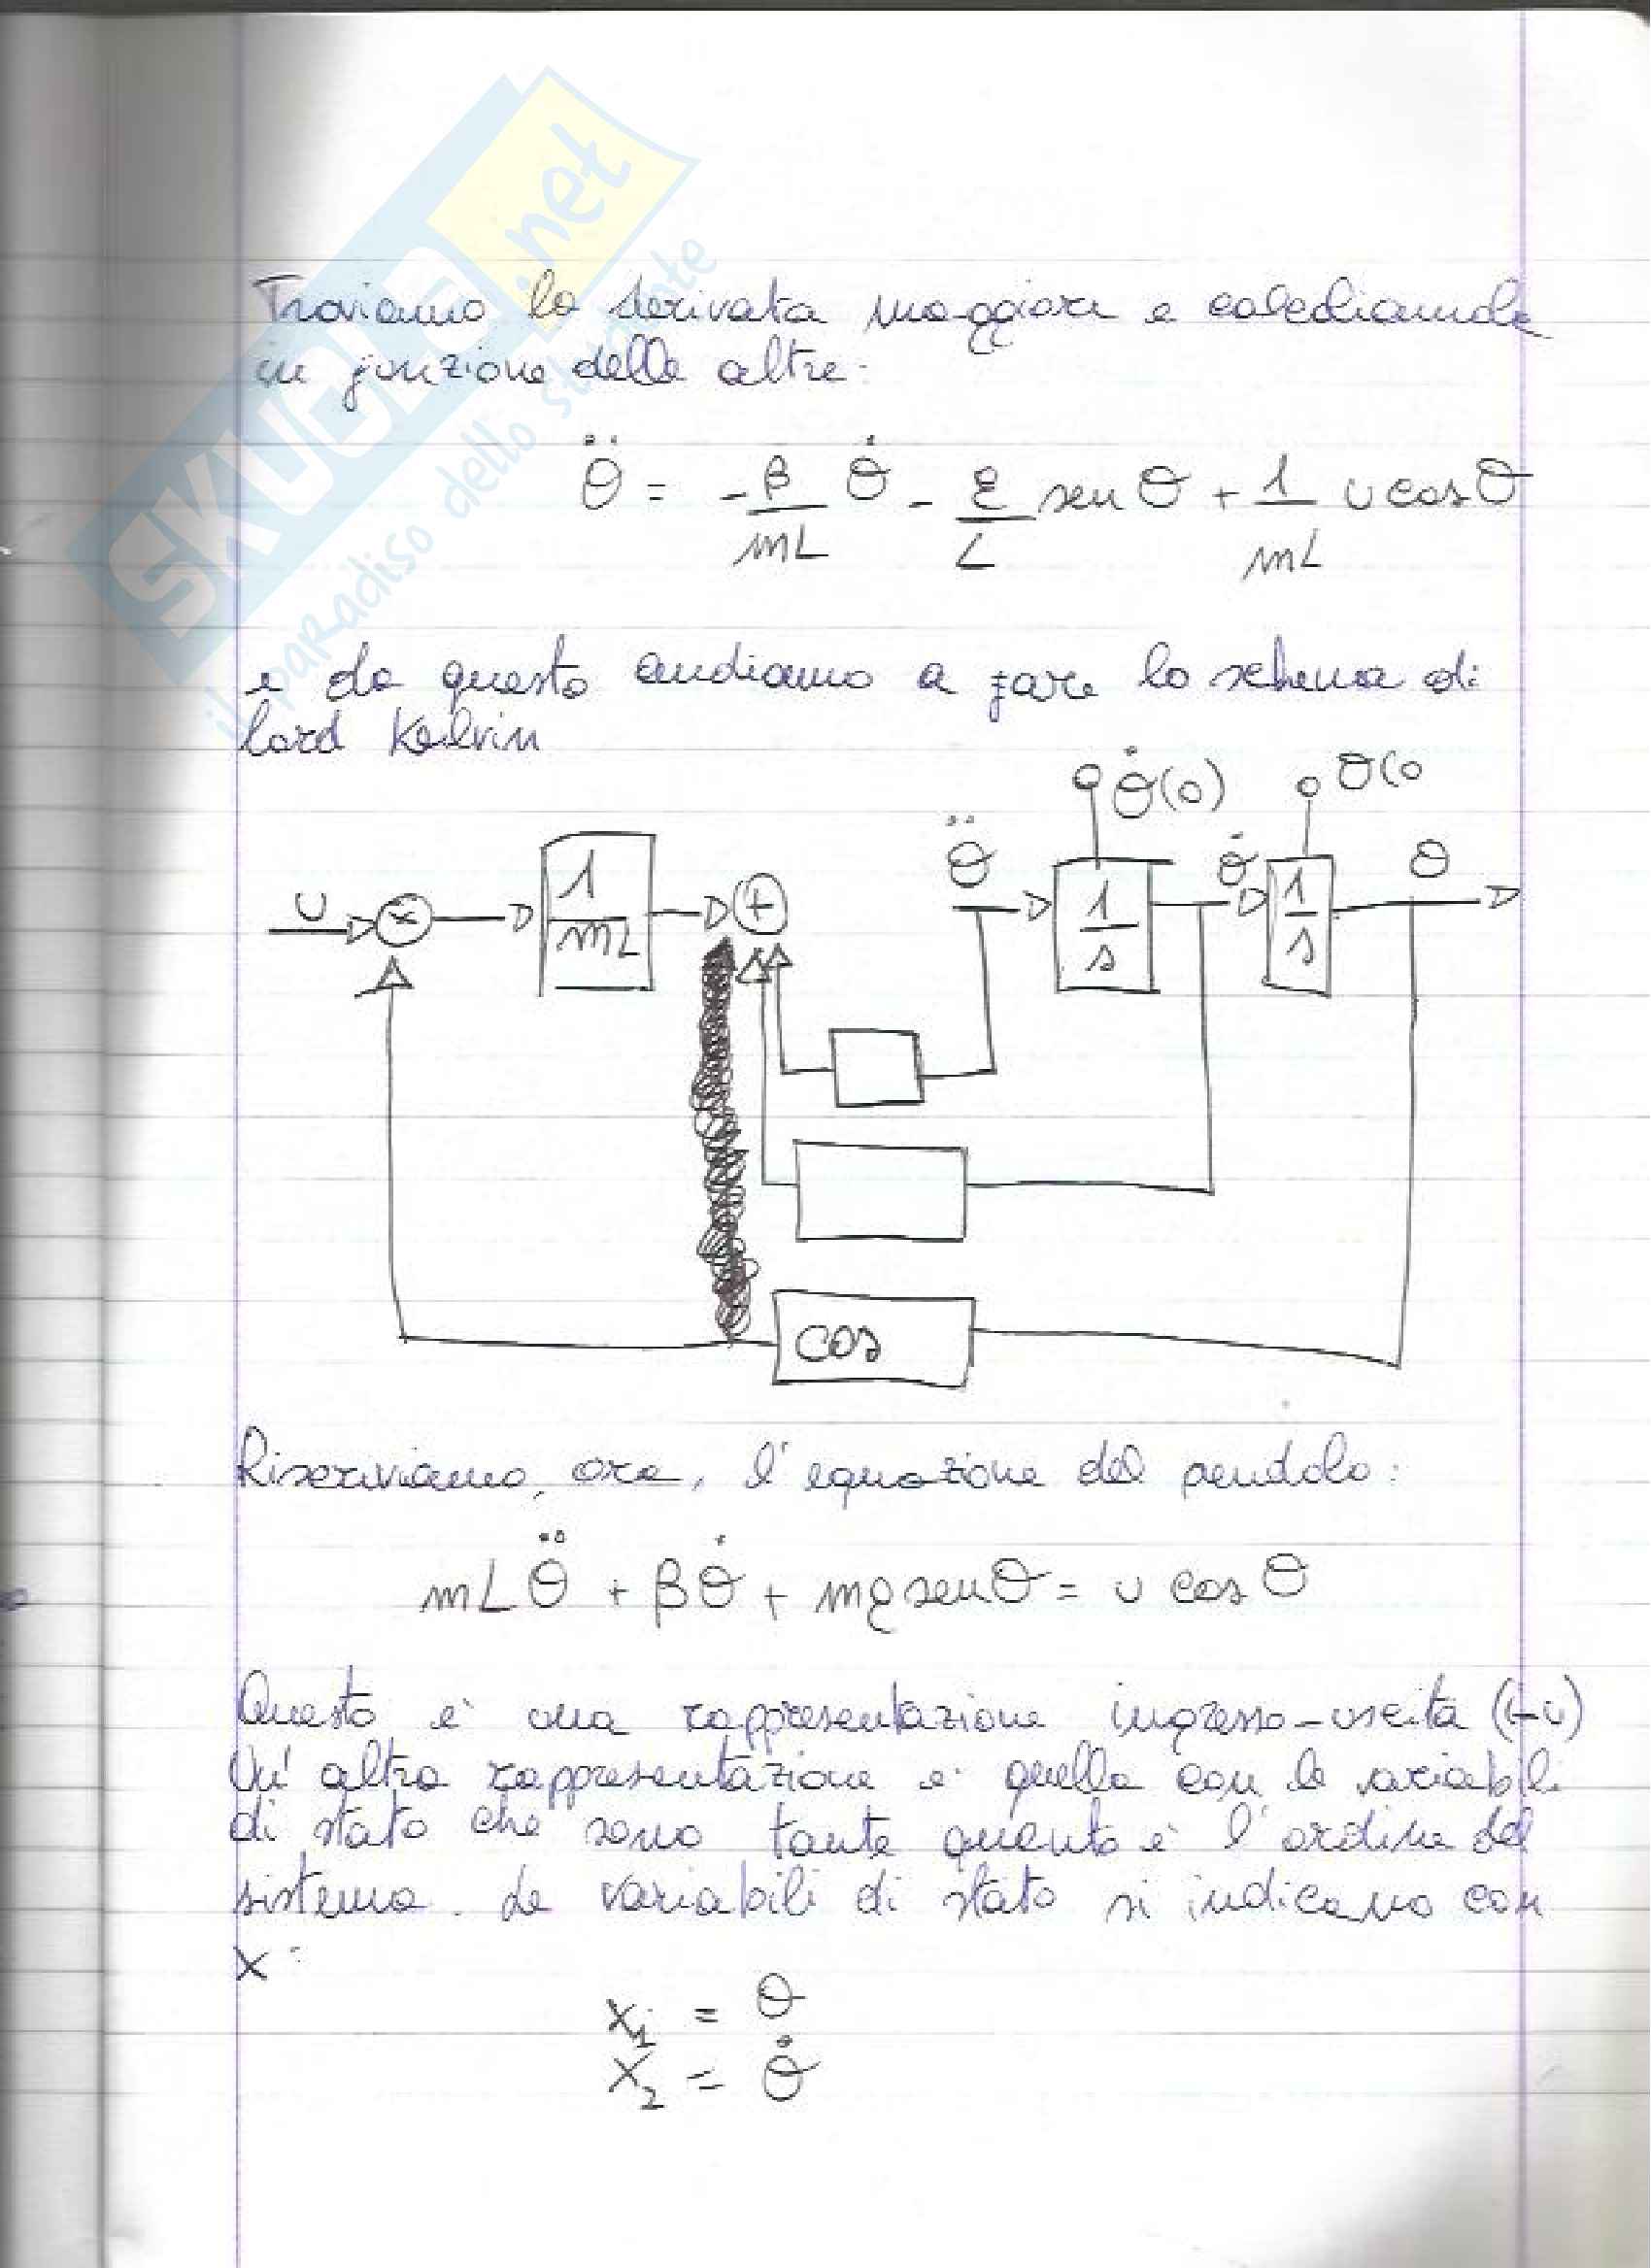 SKUOLA.net
il paradiso dello studente
Troviamo la derivata maggiore e calcoliamola
in funzione delle altre:
θ̈ = -β/mL θ̇ - g/L sen θ + 1/mL u cos θ
e da questo andiamo a fare lo schema di
lord Kelvin
θ̇(0) θ(0
u × 1/mL + θ̈ 1/s θ̇ 1/s θ
cos
Riscriviamo, ora, l'equazione del pendolo:
mLθ̈ + βθ̇ + mg sen θ = u cos θ
Questo è una rappresentazione ingresso-uscita (i-u)
Un'altra rappresentazione e' quella con le variabili
di stato che sono tante quanto è l'ordine del
sistema. Le variabili di stato si indicano con
x:
x₁ = θ
x₂ = θ̇